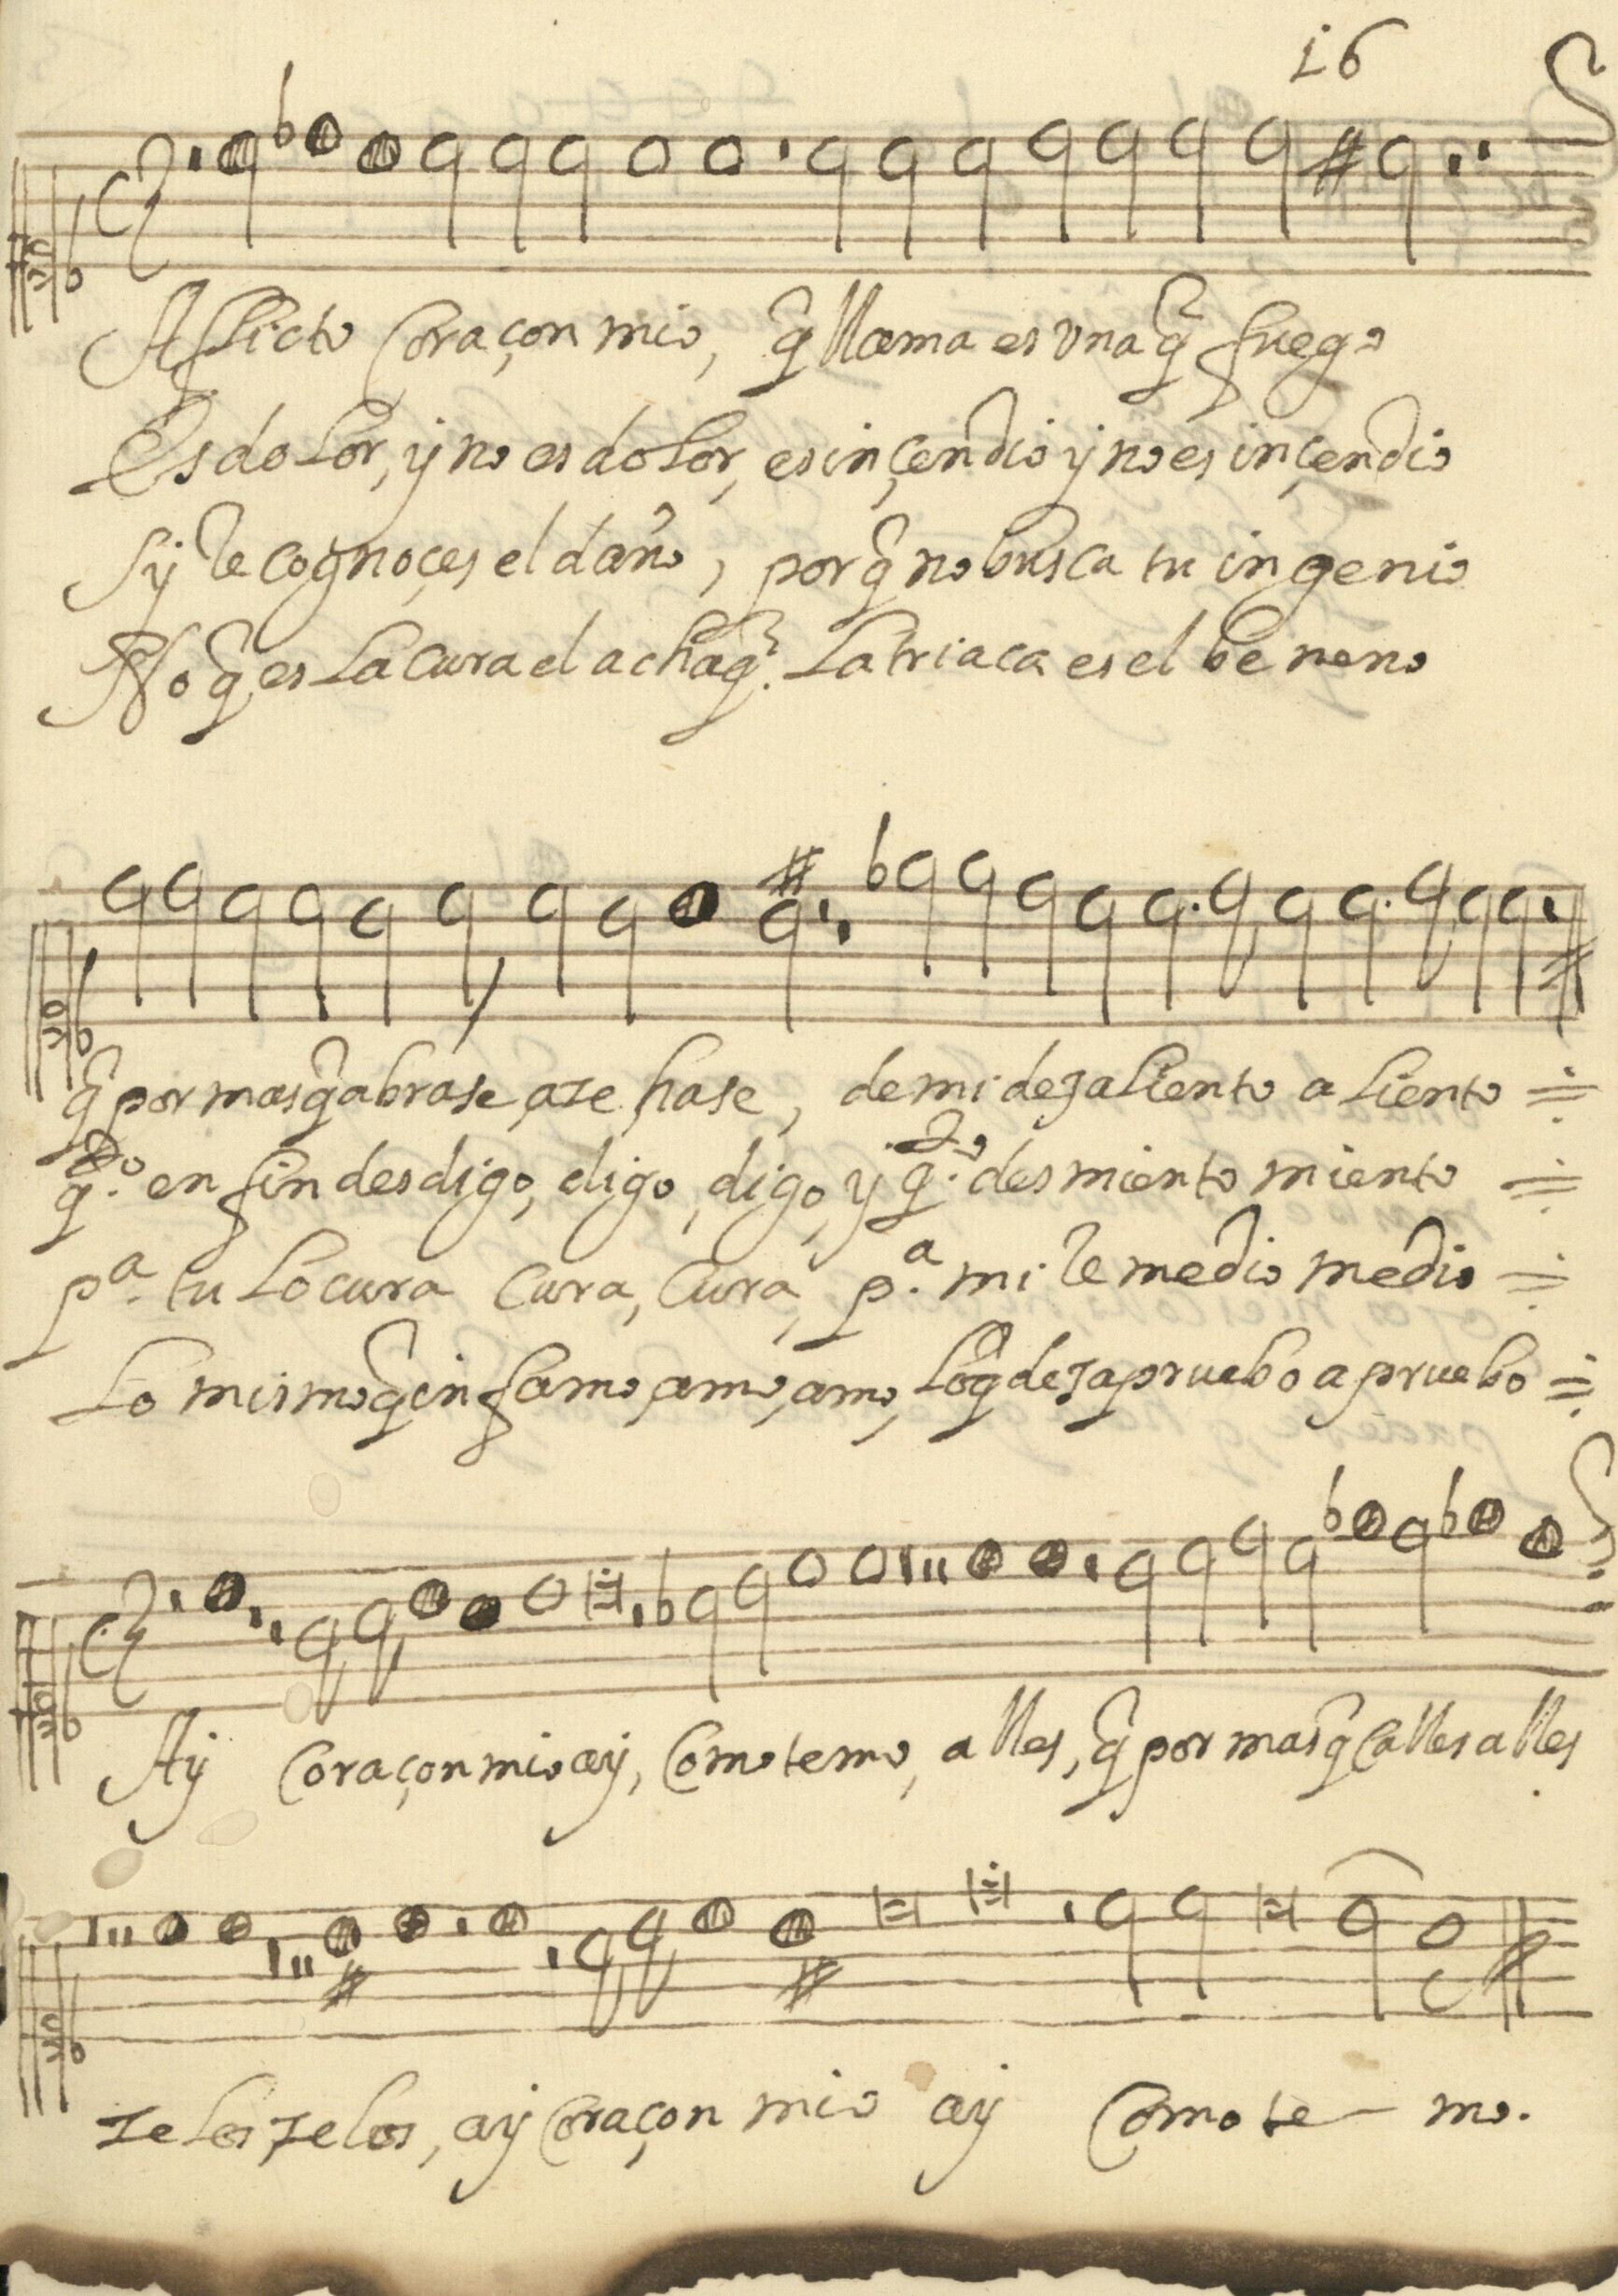 16
Aflicto Coraçon mio, q̃ llama es vna q̃ fuego
Es dolor, y no es dolor, es inçendio y no es inçendio
Sy le cognoçes el daño, por q̃ no busca tu ingenio
No q̃ es La cura el achaq̃. La triaca es el beneno
q̃ por mas q̃ abrase, aze, hase, de mi dezaliento aliento
q.do en fin desdigo, digo, digo, y q.do desmiento miento
p.a tu Locura Cura, Cura, p.a mi Remedio medio
Lo mismo q̃ infamo, amo, amo, Lo q̃ dezapruebo apruebo
Ay Coraçon mio ay, Como temo, alles, q̃ por mas q̃ Calles alles
zelos zelos, ay Coraçon mio ay Como te mo.